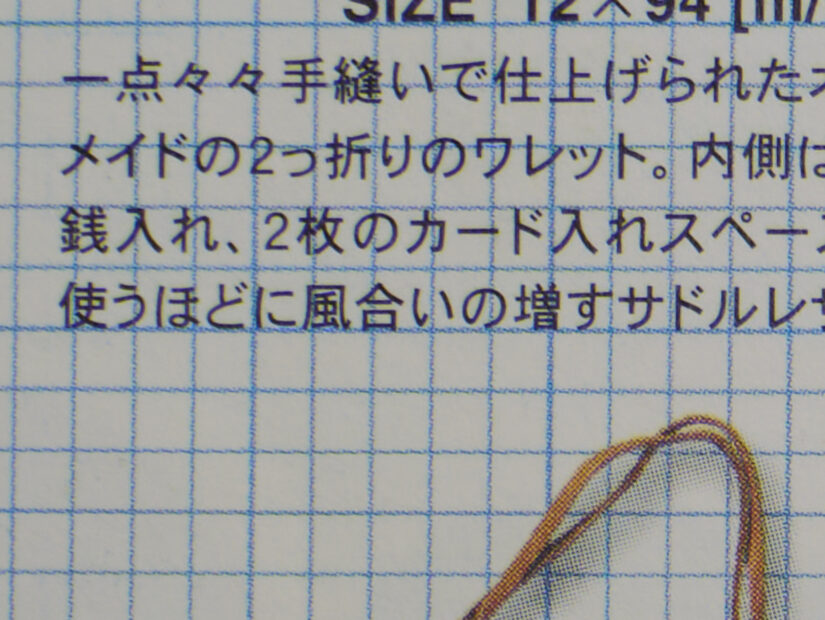 SIZE 12×94 [m/
一点々々手縫いで仕上げられたオ
メイドの2っ折りのワレット。内側は
銭入れ、2枚のカード入れスペース
使うほどに風合いの増すサドルレザ